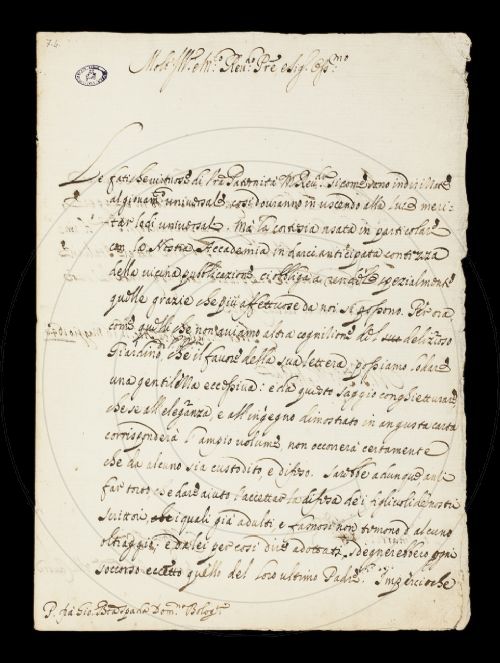 74
Molt' Ill.re e M.to Rev.do P're e Sig.r Oss.mo
Le fatiche virtuose di V'ra Paternità M. Rev.da sicome sono indirizzate
al giovam.to universale così dovranno in uscendo alla luce meri-
tar lodi universali. Ma la cortesia usata in particolare
con la Nostra Accademia in darci anticipata contezza
della vicina publicazione, ci obbliga a renderle spezialmente
quelle grazie che più affettuose da noi si possono. Per ora
come quelli che non aviamo altra cognitione del delizioso
Giardino, che il favore della sua lettera, possiamo lodare
una gentilezza eccessiva: e da questo saggio conghietturare
che se all'eleganza, e all'ingegno dimostrato in angusta carta
corrisponderà l'ampio volume, non occorrerà certamente
che da alcuno sia custodito, e difeso. Sarebbe adunque anzi
far torto che dare aiuto l'accettar la difesa de i figlivoli di nostri
scrittori, i quali già adulti e famosi non temono d'alcuno
oltraggio; e da lei per così dire adottati sdegnerebbero ogni
soccorso eccetto quello del loro ultimo Padre. Imperciocche
P. fra Gio. Bta Spada Dom.no Bolog.a